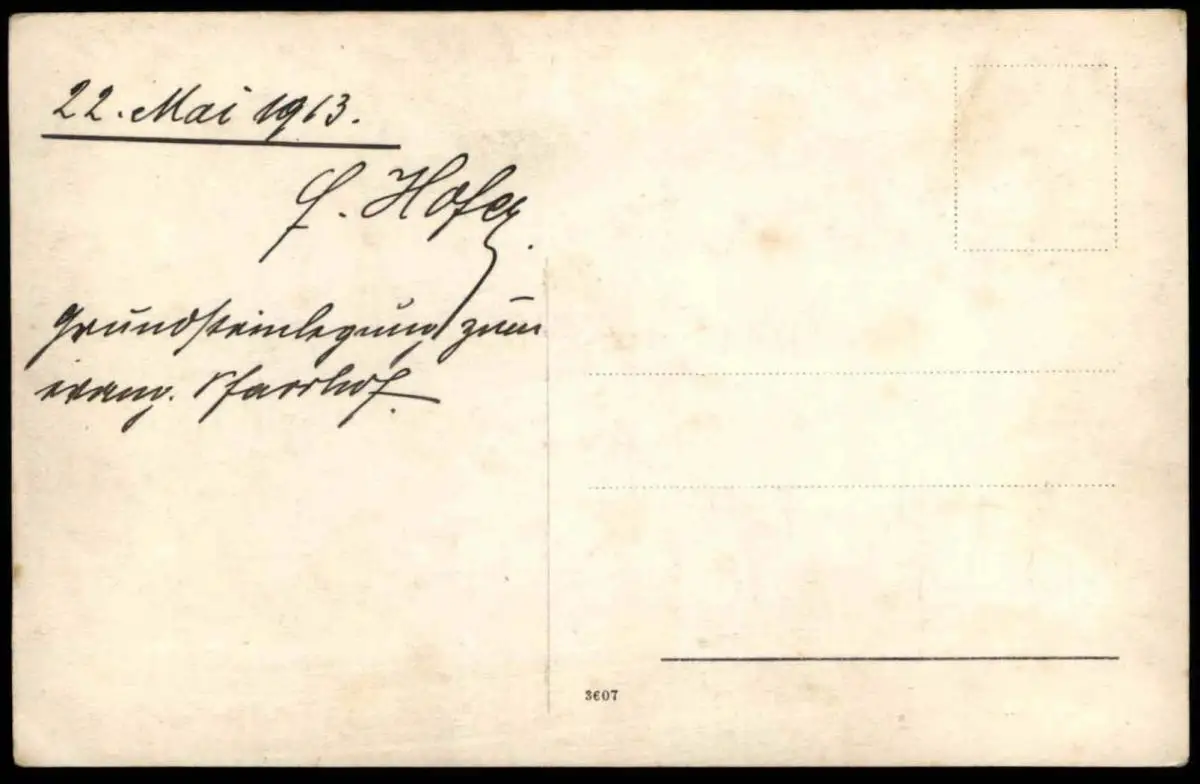 22. Mai 1913.
H. Hofer.
Grundsteinlegung zum
evang. Pfarrhof.
3607